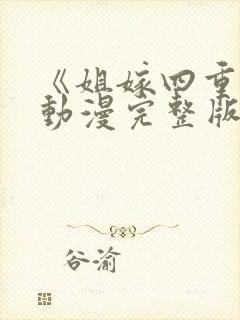 《姐嫁四重
動漫完整版
谷渝